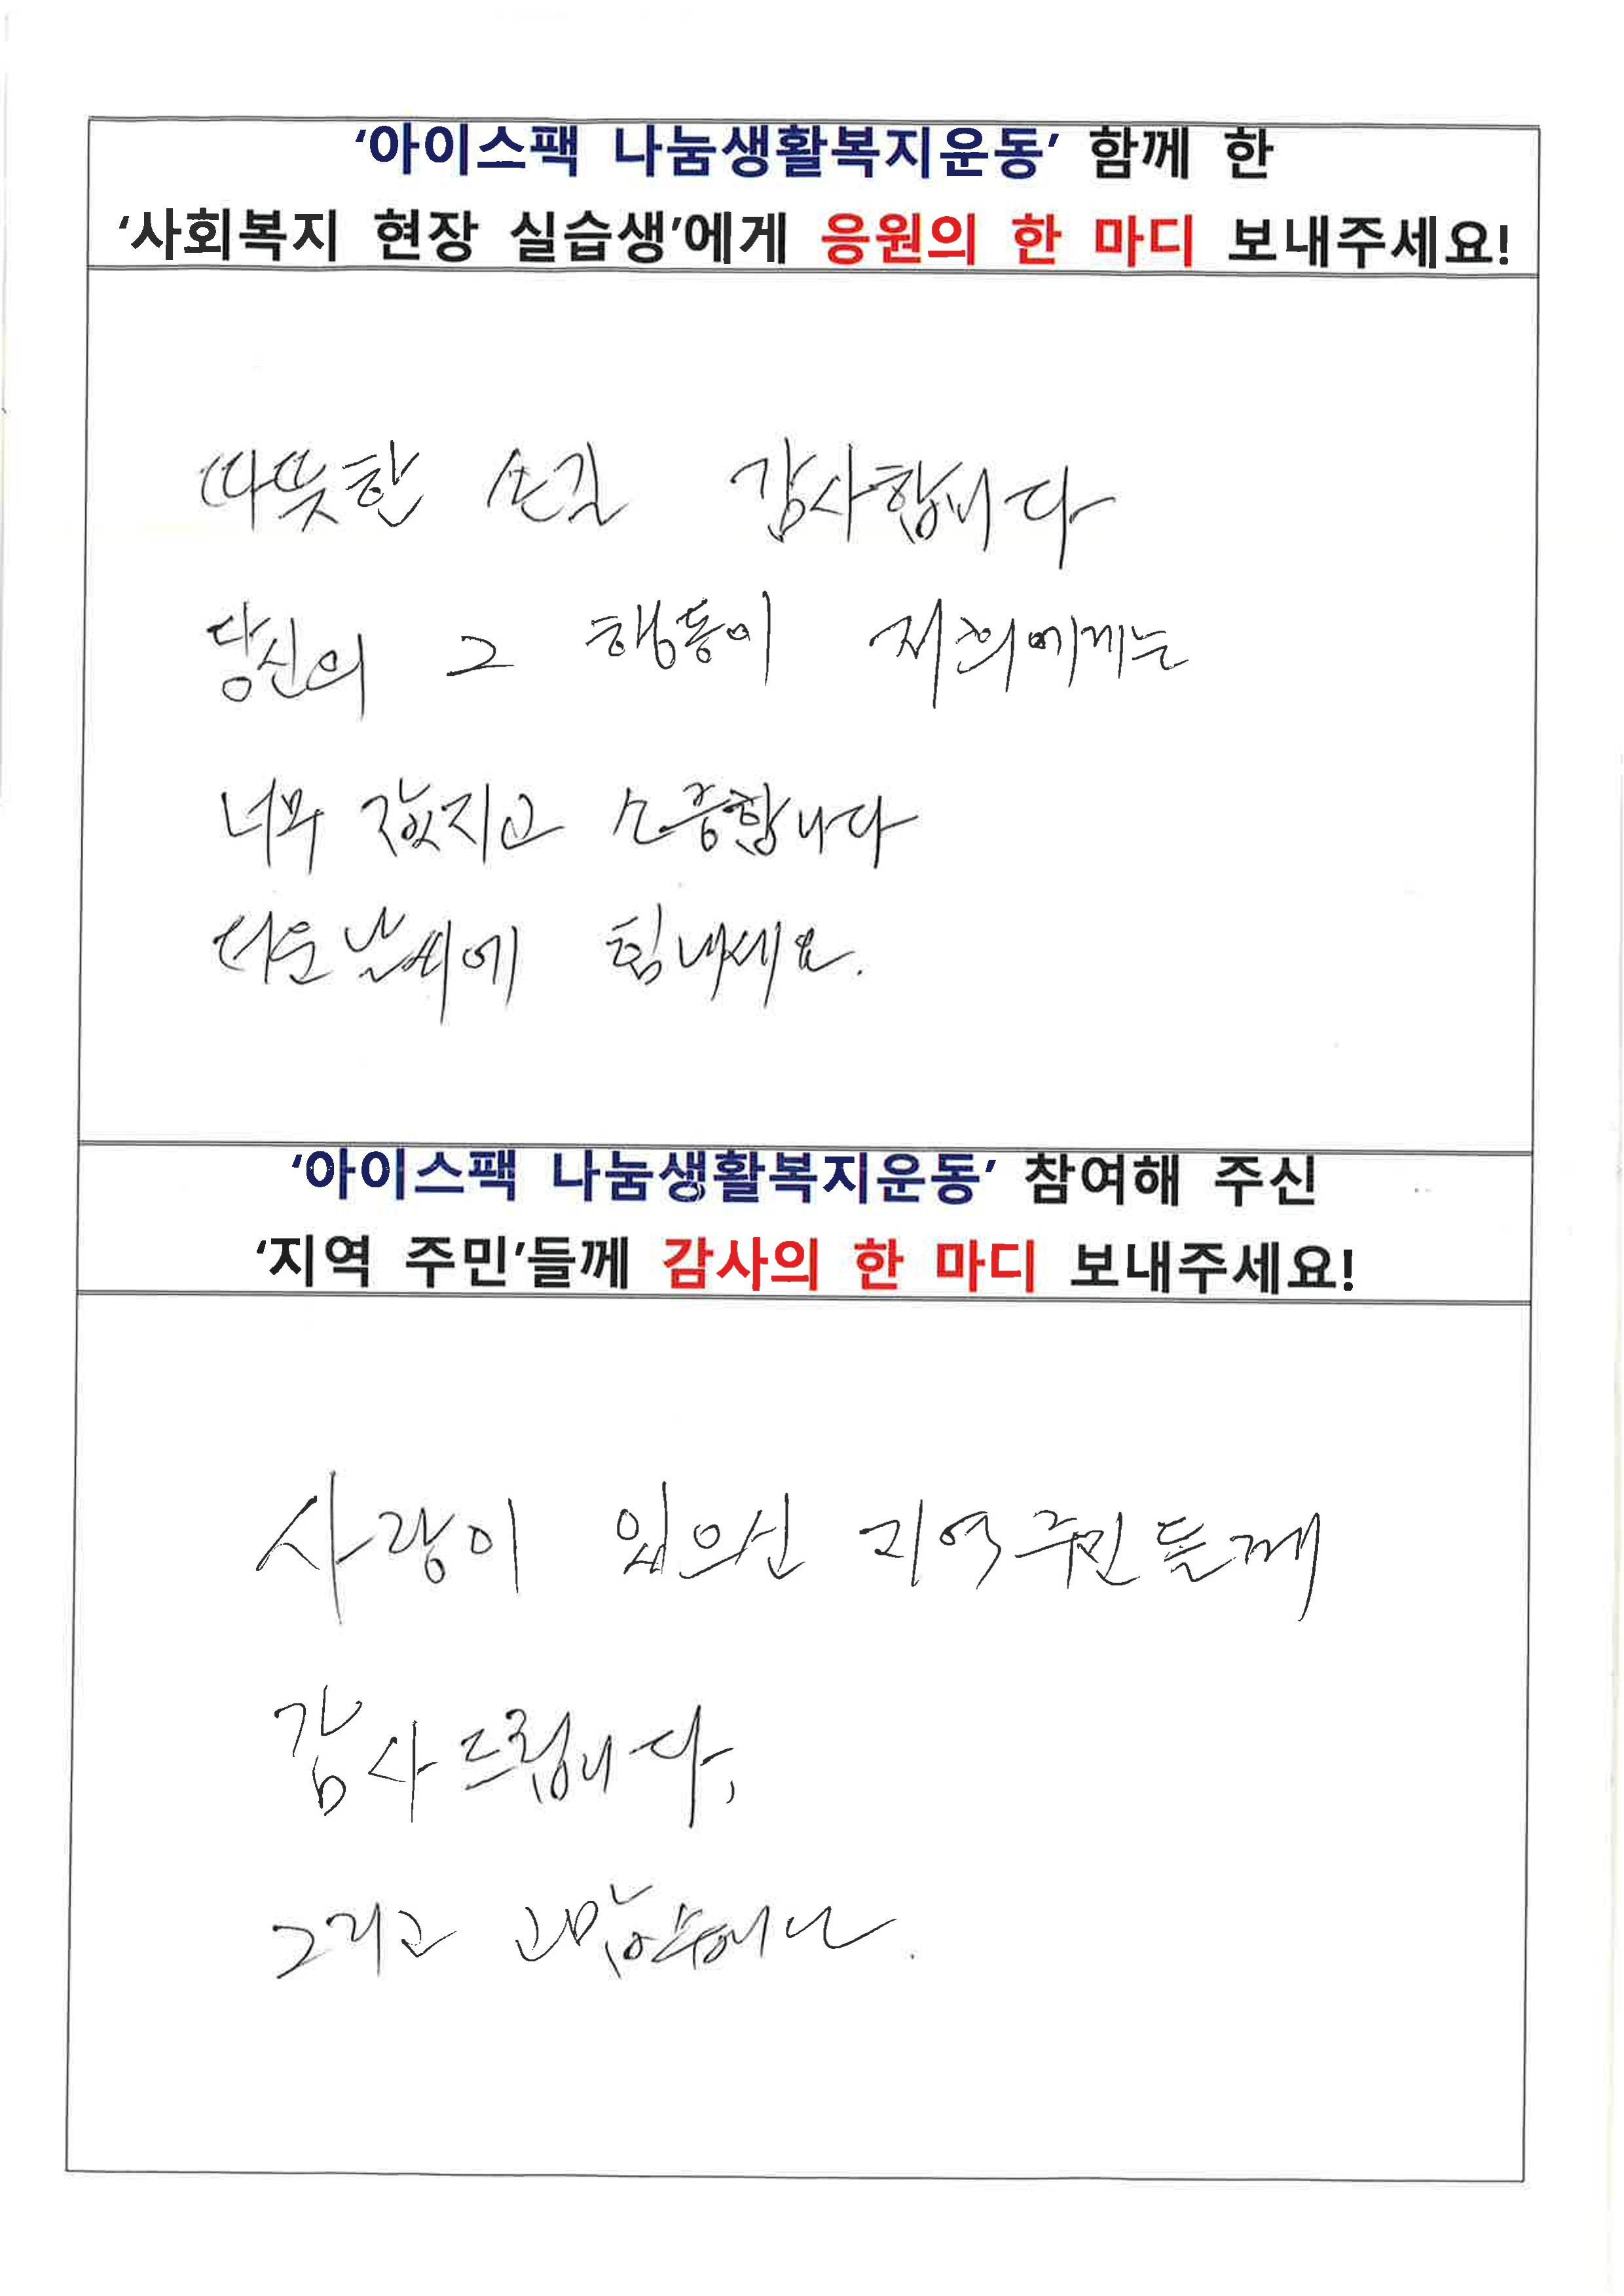 ‘아이스팩 나눔생활복지운동’ 함께 한
‘사회복지 현장 실습생’에게 응원의 한 마디 보내주세요!
따뜻한 손길 감사합니다
당신의 그 행동이 저희에게는
너무 값지고 소중합니다
더운 날씨에 힘내세요.
‘아이스팩 나눔생활복지운동’ 참여해 주신
‘지역 주민’들께 감사의 한 마디 보내주세요!
사랑이 있으신 지역주민들께
감사드립니다,
그리고